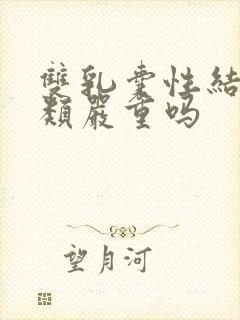 雙乳囊性結
類嚴重吗
望月河